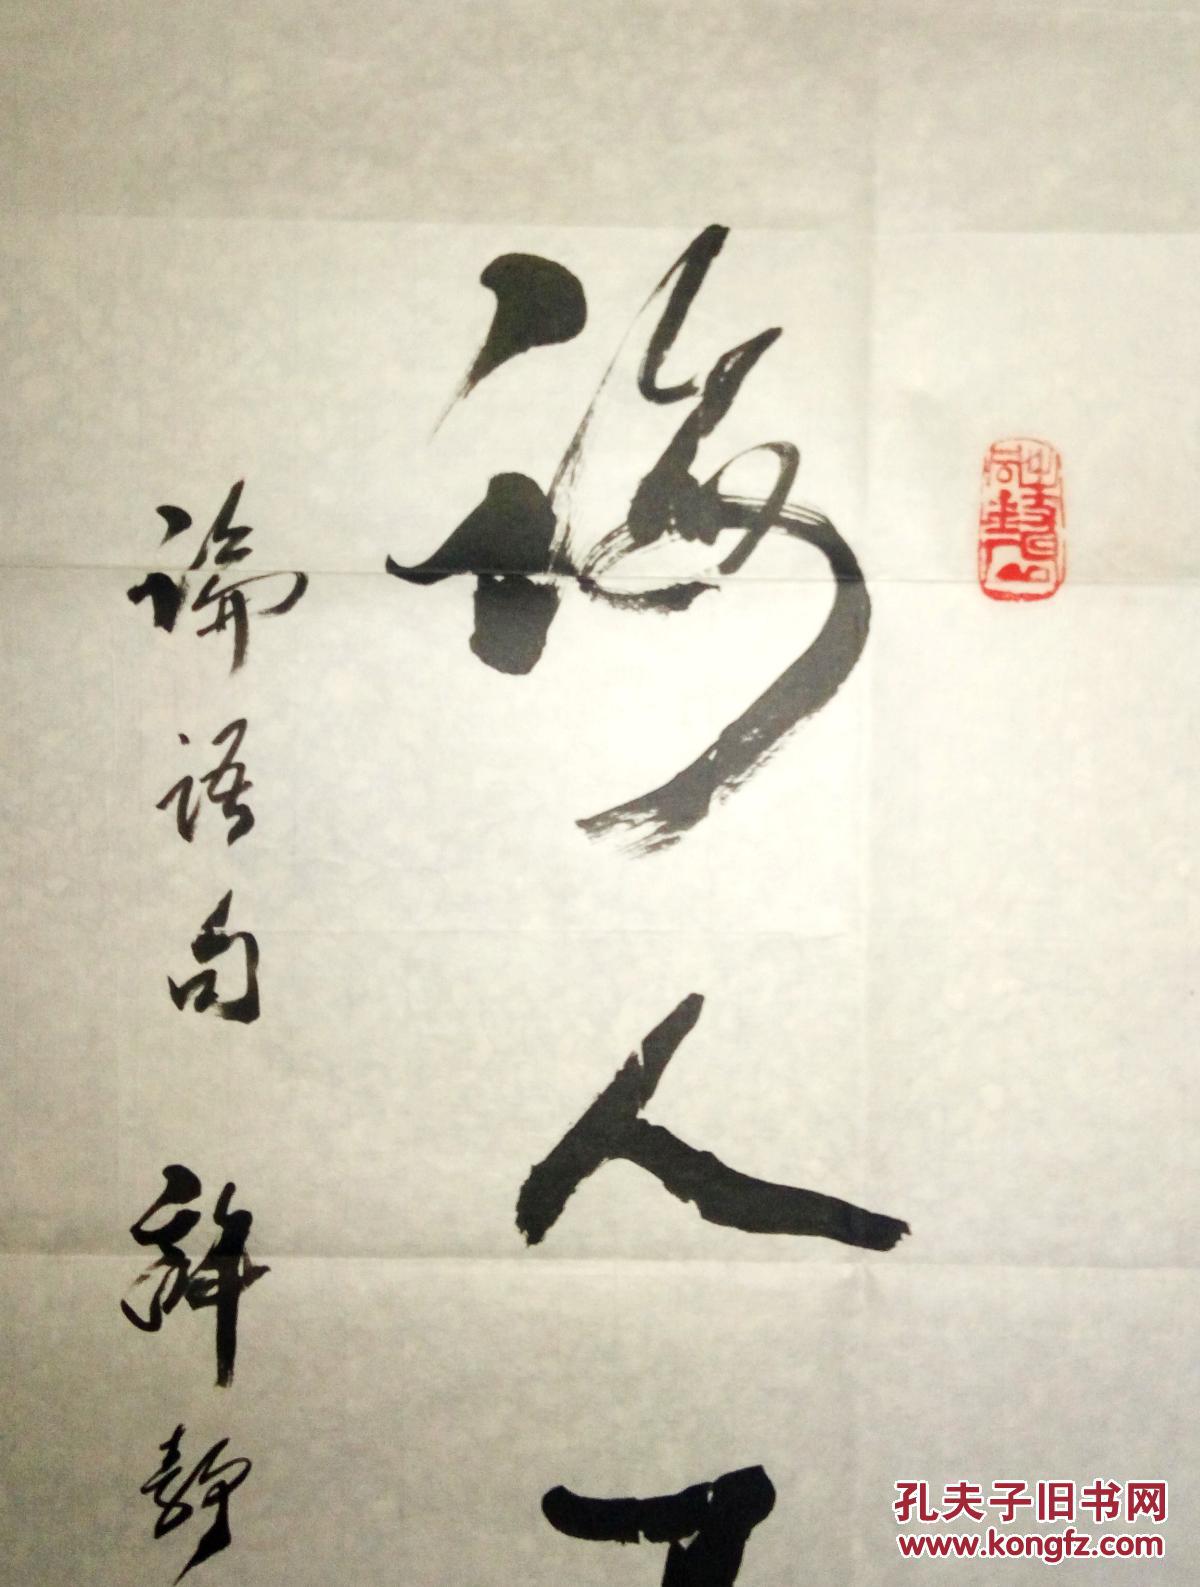 诲人不
論語句 薛静
孔夫子旧书网
www.kongfz.com